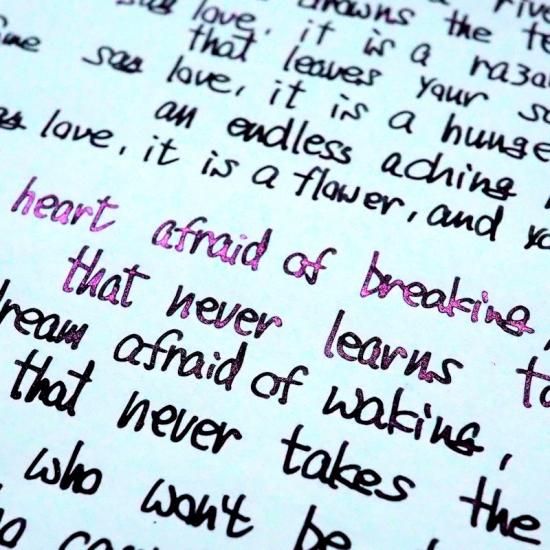 drowns the te
say love, it is a razo
that leaves your so
Some say love, it is a hunge
an endless aching
love, it is a flower, and yo
heart afraid of breaking,
that never learns to
dream afraid of waking,
that never takes the
who won't be